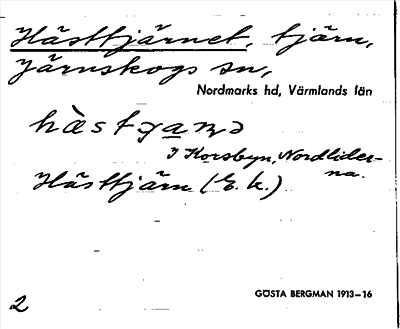 Hästtjärnet, tjärn,
Järnskogs sn,
Nordmarks hd, Värmlands län
I Korsbyn, Nordliderna.
Hästtjärn (E. k.)
2
GÖSTA BERGMAN 1913–16